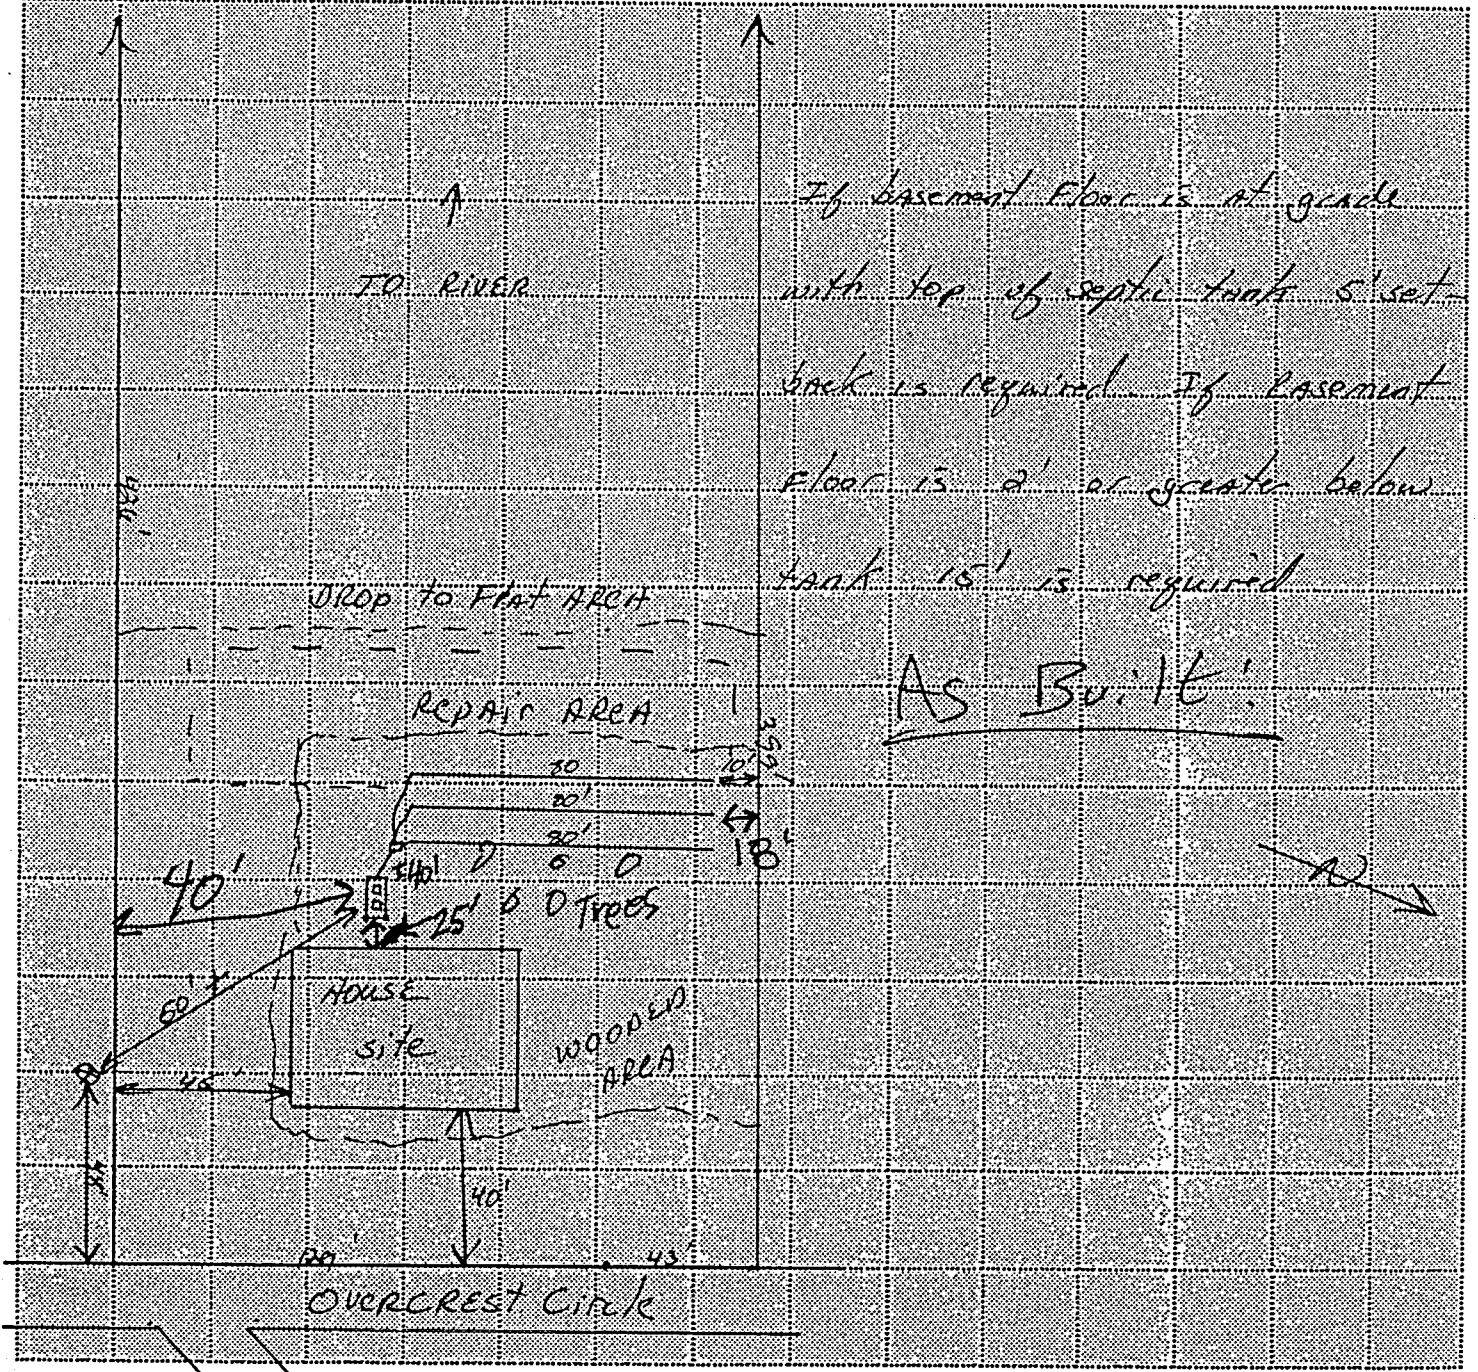 If basement Floor is at grade
with top of septic tank 5' set-
back is required. If Basement
Floor is 2' or greater below
tank 15' is required
As Built!
TO RIVER
424'
DROP to Flat AREA
Repair AREA
399'
80'
10'
80'
80'
18'
40'
±40'
25'
Trees
N
60' ±
House
site
WOODED
AREA
45'
40'
43'
OVERCREST Circle